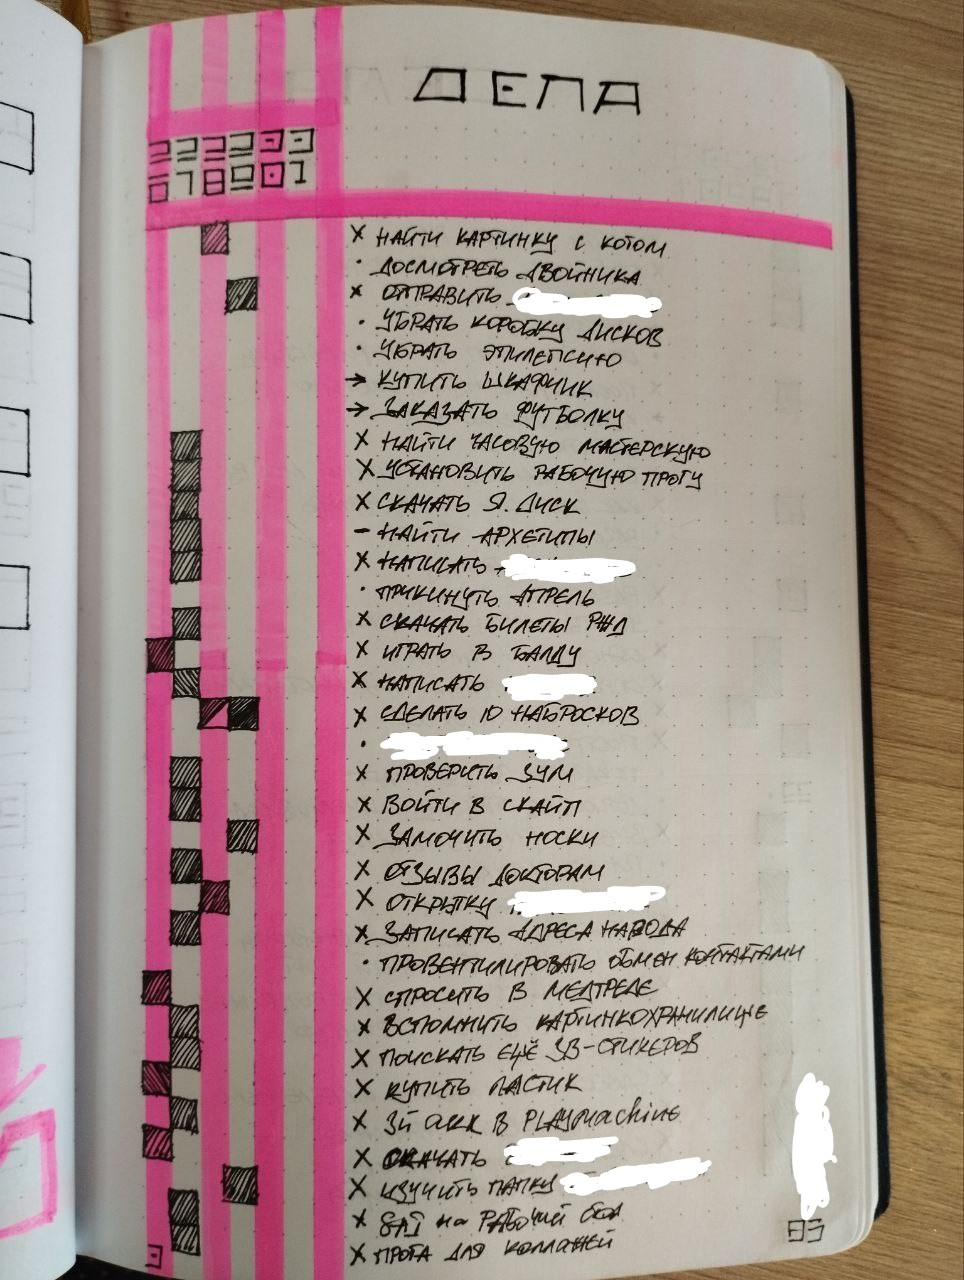 ДЕЛА
2 2 2 2 3 3
6 7 8 9 0 1
× НАЙТИ КАРТИНКУ С КОТОМ
· ДОСМОТРЕТЬ ДВОЙНИКА
× ОТПРАВИТЬ
· УБРАТЬ КОРОБКУ ДИСКОВ
· УБРАТЬ ЭПИЛЕПСИЮ
→ КУПИТЬ ШКАФЧИК
→ ЗАКАЗАТЬ ФУТБОЛКУ
× НАЙТИ ЧАСОВУЮ МАСТЕРСКУЮ
× УСТАНОВИТЬ РАБОЧУЮ ПРОГУ
× СКАЧАТЬ Я.ДИСК
– НАЙТИ АРХЕТИПЫ
× НАПИСАТЬ
· ПРИКИНУТЬ АПРЕЛЬ
× СКАЧАТЬ БИЛЕТЫ РЖД
× ИГРАТЬ В БАЛДУ
× НАПИСАТЬ
× СДЕЛАТЬ 10 НАБРОСКОВ
·
× ПРОВЕРИТЬ ЗУМ
× ВОЙТИ В СКАЙП
× ЗАМОЧИТЬ НОСКИ
× ОТЗЫВЫ ДОКТОРАМ
× ОТКРЫТКУ
× ЗАПИСАТЬ АДРЕСА НАРОДА
· ПРОВЕНТИЛИРОВАТЬ ОБМЕН КОНТАКТАМИ
× СПРОСИТЬ В МЕДТРЕДЕ
× ВСПОМНИТЬ КАРТИНКОХРАНИЛИЩЕ
× ПОИСКАТЬ ЕЩЁ ЗВ-СТИКЕРОВ
× КУПИТЬ ЛАСТИК
× 3Й АКК В PLAYMACHINE
× СКАЧАТЬ
× ИЗУЧИТЬ ПАПКУ
× SAI НА РАБОЧИЙ
× ПРОГА ДЛЯ КОЛЛАЖЕЙ
83